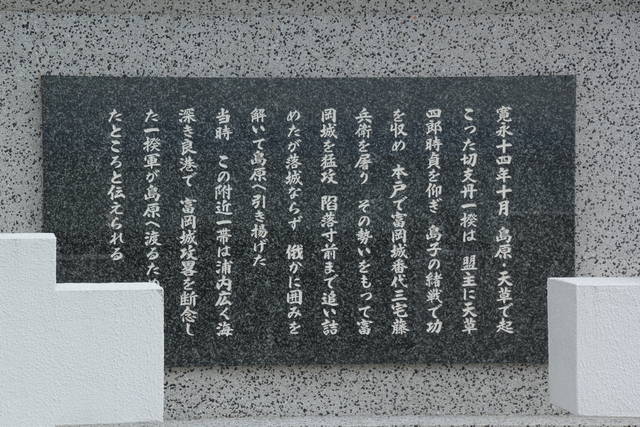 寛永十四年十月　島原・天草で起
こった切支丹一揆は　盟主に天草
四郎時貞を仰ぎ　島子の緒戦で功
を収め　本戸で富岡城番代三宅藤
兵衛を屠り　その勢いをもって富
岡城を猛攻　陥落寸前まで追い詰
めたが落城ならず　俄かに囲みを
解いて島原へ引き揚げた
当時　この附近一帯は浦内広く海
深き良港で　富岡城攻畧を断念し
た一揆軍が島原へ渡るた
たところと伝えられる